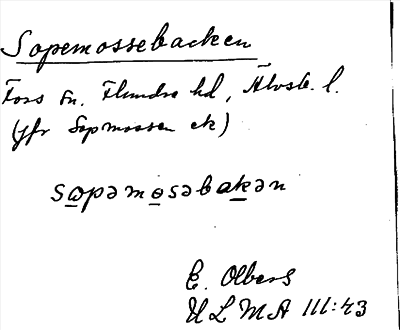 Sopemossebacken
Fors sn. Flundre hd, Älvsb. l.
(jfr Sopmossen etc)
sɷpəmɵsəbakən
E. Olbers
ULMA 111:43